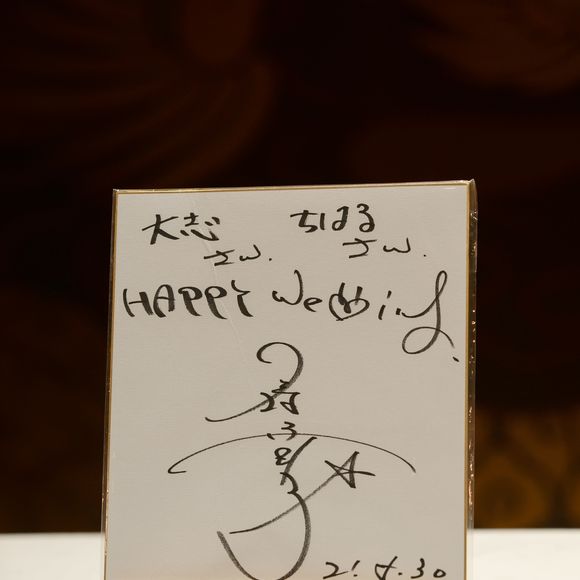 大志さん. ちはるさん.
HAPPY Wedding.
21.4.30